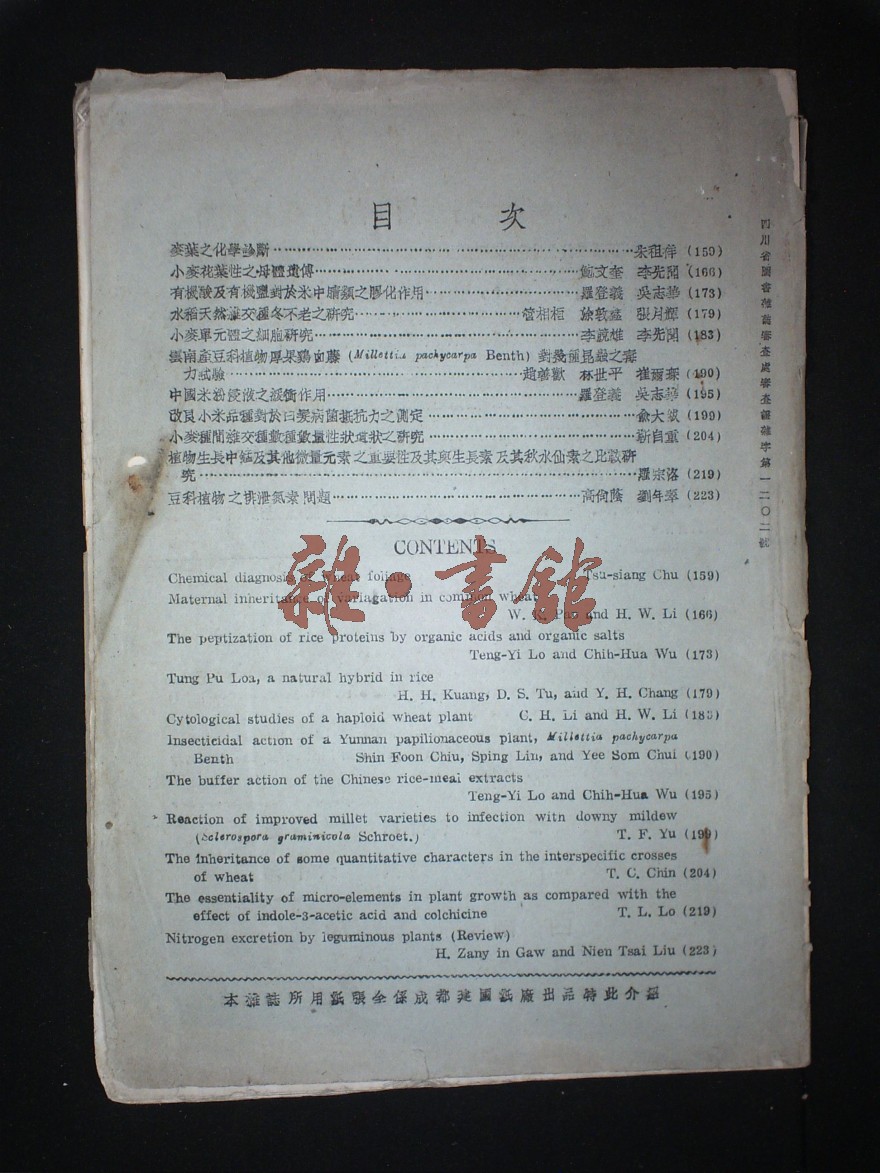 目 次
麥葉之化學診斷 朱祖祥 (159)
小麥花葉性之母體遺傳 鮑文奎 李先聞 (166)
有機酸及有機鹽對於米中 類之膠化作用 羅登義 吳志華 (173)
水稻天然雜交種冬不老之研究 管相桓 涂敦鑫 張月輝 (179)
小麥單元體之細胞研究 李競雄 李先聞 (183)
雲南產豆科植物厚果鷄血藤 (Millettia pachycarpa Benth) 對幾種昆蟲之毒
力試驗 趙善歡 林世平 (190)
中國米粉浸液之緩衝作用 羅登義 吳志華 (195)
改良小米品種對於白髮病菌抵抗力之測定 俞大紱 (199)
小麥種間雜交種數種數量性狀遺狀之研究 靳自重 (204)
植物生長中錳及其他微量元素之重要性及其與生長素及其秋水仙素之比較研
究 羅宗洛 (219)
豆科植物之排泄氮素問題 高尚蔭 劉年翠 (223)
CONTENTS
Chemical diagnosis of wheat foliage Tsu-siang Chu (159)
Maternal inheritance of variagation in common wheat
W. K. Pao and H. W. Li (166)
The peptization of rice proteins by organic acids and organic salts
Teng-Yi Lo and Chih-Hua Wu (173)
Tung Pu Loa, a natural hybrid in rice
H. H. Kuang, D. S. Tu, and Y. H. Chang (179)
Cytological studies of a haploid wheat plant C. H. Li and H. W. Li (183)
Insecticidal action of a Yunnan papilionaceous plant, Millettia pachycarpa
Benth Shin Foon Chiu, Sping Lin, and Yee Som Chui (190)
The buffer action of the Chinese rice-meal extracts
Teng-Yi Lo and Chih-Hua Wu (195)
Reaction of improved millet varieties to infection with downy mildew
(Sclerospora graminicola Schroet.) T. F. Yu (199)
The inheritance of some quantitative characters in the interspecific crosses
of wheat T. C. Chin (204)
The essentiality of micro-elements in plant growth as compared with the
effect of indole-3-acetic acid and colchicine T. L. Lo (219)
Nitrogen excretion by leguminous plants (Review)
H. Zany in Gaw and Nien Tsai Liu (223)
本雜誌所用紙張全係成都建國紙廠出品特此介紹
四川省圖書雜誌審查處審查證雜字第一二〇二號
雜·書館